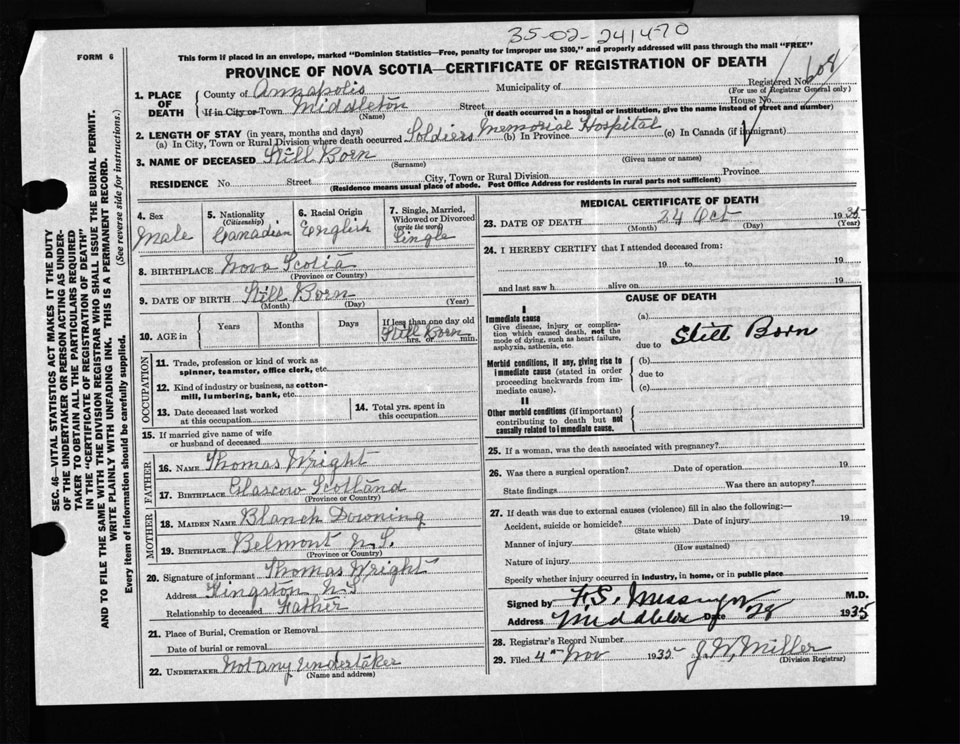 35-02-241470
FORM 6
This form if placed in an envelope, marked "Dominion Statistics—Free, penalty for improper use $300," and properly addressed will pass through the mail "FREE"
PROVINCE OF NOVA SCOTIA—CERTIFICATE OF REGISTRATION OF DEATH
Registered No. 608
(For use of Registrar General only)
1. PLACE OF DEATH
County of Annapolis Municipality of
If in City or Town Middleton Street House No.
(Name) (If death occurred in a hospital or institution, give the name instead of street and number)
2. LENGTH OF STAY (in years, months and days)
(a) In City, Town or Rural Division where death occurred Soldiers Memorial Hospital (b) In Province (c) In Canada (if immigrant)
3. NAME OF DECEASED Still Born
(Surname) (Given name or names)
RESIDENCE No. Street City, Town or Rural Division Province
(Residence means usual place of abode. Post Office Address for residents in rural parts not sufficient)
4. Sex
Male
5. Nationality
(Citizenship)
Canadian
6. Racial Origin
English
7. Single, Married, Widowed or Divorced
(write the word)
Single
8. BIRTHPLACE Nova Scotia
(Province or Country)
9. DATE OF BIRTH Still Born
(Month) (Day) (Year)
10. AGE in Years Months Days If less than one day old
Still Born
hrs. or min.
OCCUPATION
11. Trade, profession or kind of work as spinner, teamster, office clerk, etc.
12. Kind of industry or business, as cotton-mill, lumbering, bank, etc.
13. Date deceased last worked at this occupation
14. Total yrs. spent in this occupation
15. If married give name of wife or husband of deceased
FATHER
16. NAME Thomas Wright
17. BIRTHPLACE Glascow Scotland
(Province or Country)
MOTHER
18. MAIDEN NAME Blanch Downing
19. BIRTHPLACE Belmont N.S.
(Province or Country)
20. Signature of informant Thomas Wright
Address Kingston N.S
Relationship to deceased Father
21. Place of Burial, Cremation or Removal
Date of burial or removal
22. UNDERTAKER Not any Undertaker
(Name and address)
MEDICAL CERTIFICATE OF DEATH
23. DATE OF DEATH 24 Oct 1935
(Month) (Day) (Year)
24. I HEREBY CERTIFY that I attended deceased from:
19 to 19
and last saw h alive on 19
CAUSE OF DEATH
I
Immediate cause
Give disease, injury or complication which caused death, not the mode of dying, such as heart failure, asphyxia, asthenia, etc.
(a) Still Born
due to
Morbid conditions, if any, giving rise to immediate cause (stated in order proceeding backwards from immediate cause).
(b)
due to
(c)
II
Other morbid conditions (if important) contributing to death but not causally related to immediate cause.
25. If a woman, was the death associated with pregnancy?
26. Was there a surgical operation? Date of operation 19
State findings Was there an autopsy?
27. If death was due to external causes (violence) fill in also the following:—
Accident, suicide or homicide? Date of injury 19
(State which)
Manner of injury
(How sustained)
Nature of injury
Specify whether injury occurred in industry, in home, or in public place
Signed by F.S. M.D.
Address Middleton Date 1935
28. Registrar's Record Number
29. Filed 4th Nov 1935 J.W. Miller
(Division Registrar)
SEC. 46—VITAL STATISTICS ACT MAKES IT THE DUTY
OF THE UNDERTAKER OR PERSON ACTING AS UNDER-
TAKER TO OBTAIN ALL THE PARTICULARS REQUIRED
IN THE "CERTIFICATE OF REGISTRATION OF DEATH"
AND TO FILE THE SAME WITH THE DIVISION REGISTRAR WHO SHALL ISSUE THE BURIAL PERMIT.
WRITE PLAINLY WITH UNFADING INK. THIS IS A PERMANENT RECORD.
Every item of information should be carefully supplied. (See reverse side for instructions.)